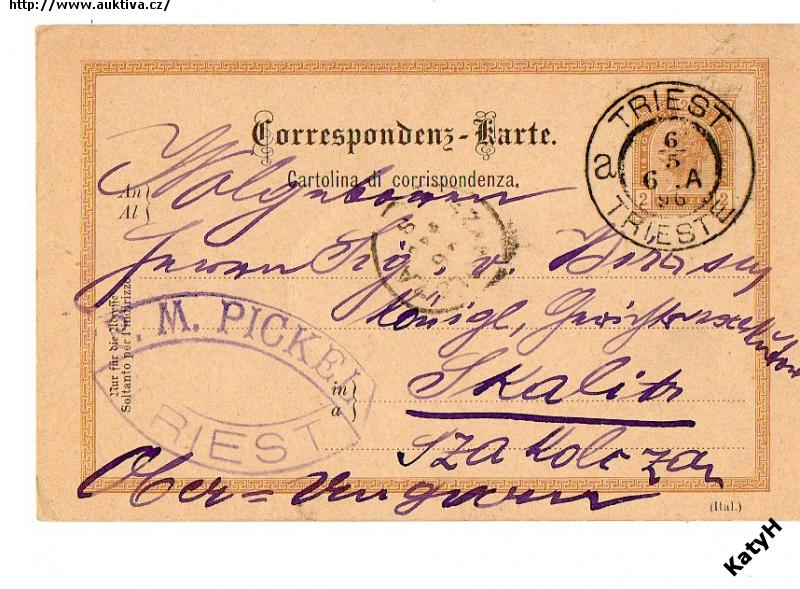 http://www.auktiva.cz/
Correspondenz-Karte.
Cartolina di corrispondenza.
TRIEST
6
5
6 A
96
a
TRIESTE
2
An
Al
Wolgeboren
Herrn Sig. v.
Königl. Gerichts
in
a
Skalitz
Szakolczan
Ober=Ungarn
M. PICKEL
TRIEST
Nur für die Adresse
Soltanto per l'indirizzo
(Ital.)
KatyH